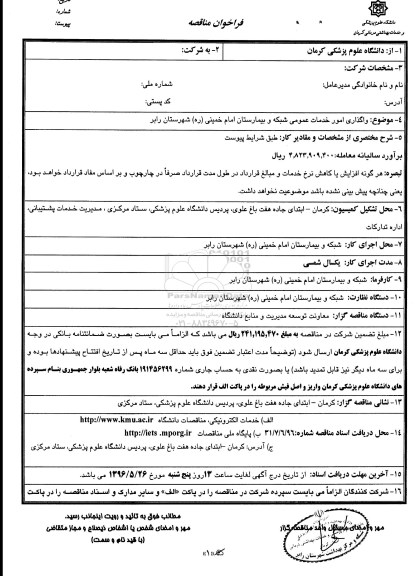 دانشگاه علوم پزشکی
و خدمات بهداشتی درمانی کرمان
فراخوان مناقصه
شماره:
پیوست:
۱- از: دانشگاه علوم پزشکی کرمان
۲- به شرکت:
۳- مشخصات شرکت:
نام و نام خانوادگی مدیرعامل:
شماره ملی:
آدرس:
کد پستی:
۴-موضوع: واگذاری امور خدمات عمومی شبکه و بیمارستان امام خمینی (ره) شهرستان رابر
۵- شرح مختصری از مشخصات و مقادیر کار: طبق شرایط پیوست
برآورد سالیانه معامله: ۴.۸۲۳.۹۰۹.۴۰۰ ریال
تبصره: هر گونه افزایش یا کاهش نرخ خدمات و مبالغ قرارداد در طول مدت قرارداد صرفاً در چارچوب و بر اساس مفاد قرارداد خواهد بود،
یعنی چنانچه پیش بینی نشده باشد موضوعیت نخواهد داشت.
۶- محل تشکیل کمیسیون: کرمان – ابتدای جاده هفت باغ علوی، پردیس دانشگاه علوم پزشکی، ستاد مرکزی ، مدیریت خدمات پشتیبانی،
اداره تدارکات
۷- محل اجرای کار: شبکه و بیمارستان امام خمینی (ره) شهرستان رابر
۸- مدت اجرای کار: یکسال شمسی
۹- کارفرما: شبکه و بیمارستان امام خمینی (ره) شهرستان رابر
۱۰- دستگاه نظارت: شبکه و بیمارستان امام خمینی (ره) شهرستان رابر
۱۱- دستگاه مناقصه گزار: معاونت توسعه مدیریت و منابع دانشگاه
۱۲- مبلغ تضمین شرکت در مناقصه به مبلغ ۲۴۱,۱۹۵,۴۷۰ ریال می باشد که الزاماً می بایست بصورت ضمانتنامه بانکی در وجه
دانشگاه علوم پزشکی کرمان ارسال شود (توضیحاً مدت اعتبار تضمین فوق باید حداقل سه ماه پس از تاریخ افتتاح پیشنهادها بوده و
برای سه ماه دیگر نیز قابل تمدید باشد) یا بصورت نقدی به حساب جاری شماره ۱۹۱۴۵۶۲۹۹ بانک رفاه شعبه بلوار جمهوری بنام سپرده
های دانشگاه علوم پزشکی کرمان واریز و اصل فیش مربوطه را در پاکت الف قرار دهند.
۱۳- نشانی مناقصه گزار: کرمان – ابتدای جاده هفت باغ علوی، پردیس دانشگاه علوم پزشکی، ستاد مرکزی
الف) خدمات الکترونیکی، مناقصات دانشگاه http://www.kmu.ac.ir
۱۴- محل دریافت اسناد مناقصه شماره: ۳۱/۷/۶/۹۶ ب) پایگاه ملی مناقصات http://iets .mporg.ir
ج) آدرس: کرمان –ابتدای جاده هفت باغ علوی، پردیس دانشگاه علوم پزشکی، ستاد مرکزی
۱۵- آخرین مهلت دریافت اسناد: از تاریخ درج آگهی لغایت ساعت ۱۳روز پنج شنبه مورخ ۱۳۹۶/۵/۲۶ می باشد.
۱۶- شرکت کنندگان الزاماً می بایست سپرده شرکت در مناقصه را در پاکت «الف» و سایر مدارک و اسناد مناقصه را در پاکت
مطالب فوق به تائید و رویت اینجانب رسید.
مهر و امضای شخص یا اشخاص ذیصلاح و مجاز متقاضی
(با قید نام و سمت)
مهر و امضای مسئول واحد مناقصه گزار